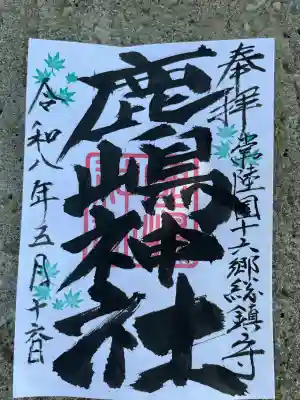 奉拝
常陸國十六郷総鎮守
鹿嶋神社
令和八年五月十六日